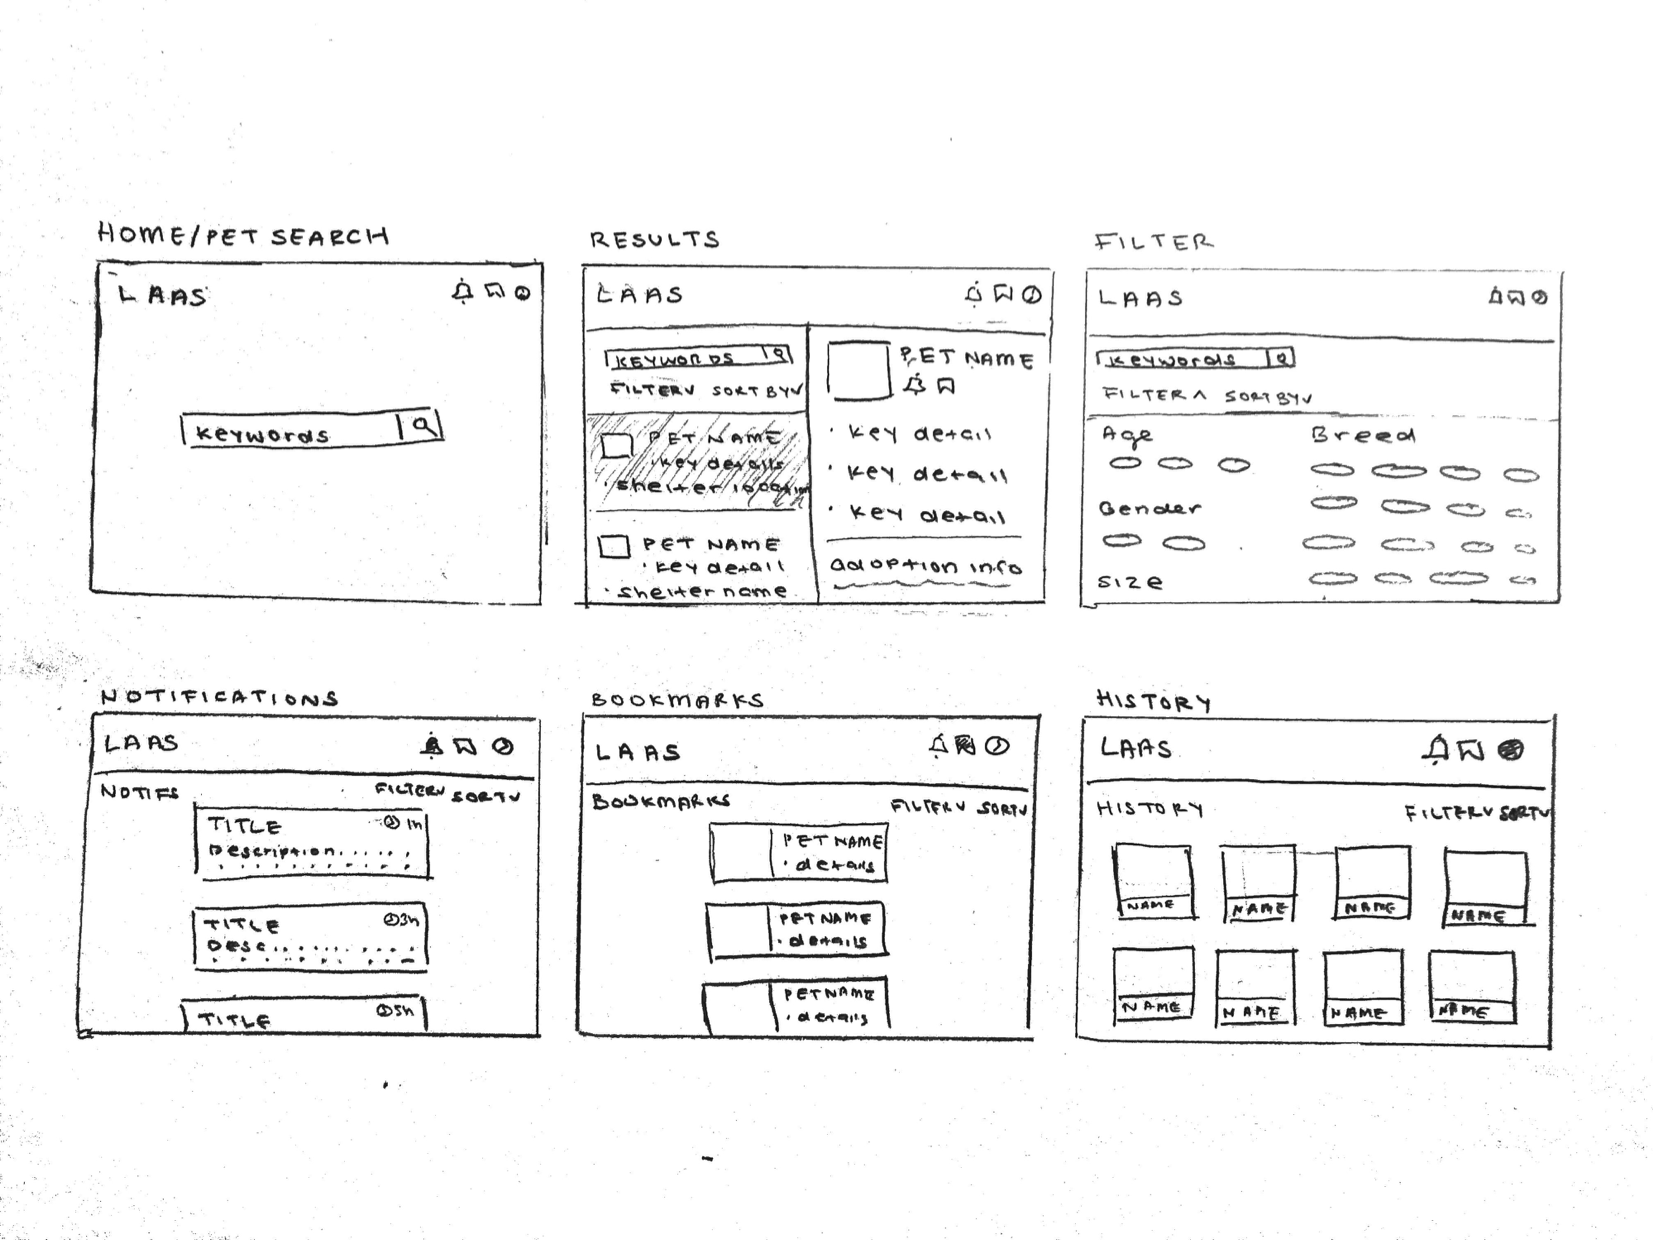 HOME/PET SEARCH
LAAS
keywords
RESULTS
LAAS
KEYWORDS
FILTER∨ SORT BY∨
PET NAME
· key details
· shelter location
PET NAME
· key detail
· shelter name
PET NAME
· key detail
· key detail
· key detail
adoption info
FILTER
LAAS
keywords
FILTER ∧ SORT BY∨
Age
Gender
size
Breed
NOTIFICATIONS
LAAS
NOTIFS
FILTER∨ SORT∨
TITLE 1h
Description
TITLE 3h
Desc
TITLE 5h
BOOKMARKS
LAAS
BOOKMARKS
FILTER∨ SORT∨
PET NAME
· details
PET NAME
· details
PET NAME
· details
HISTORY
LAAS
HISTORY
FILTER∨ SORT∨
NAME NAME NAME NAME
NAME NAME NAME NAME